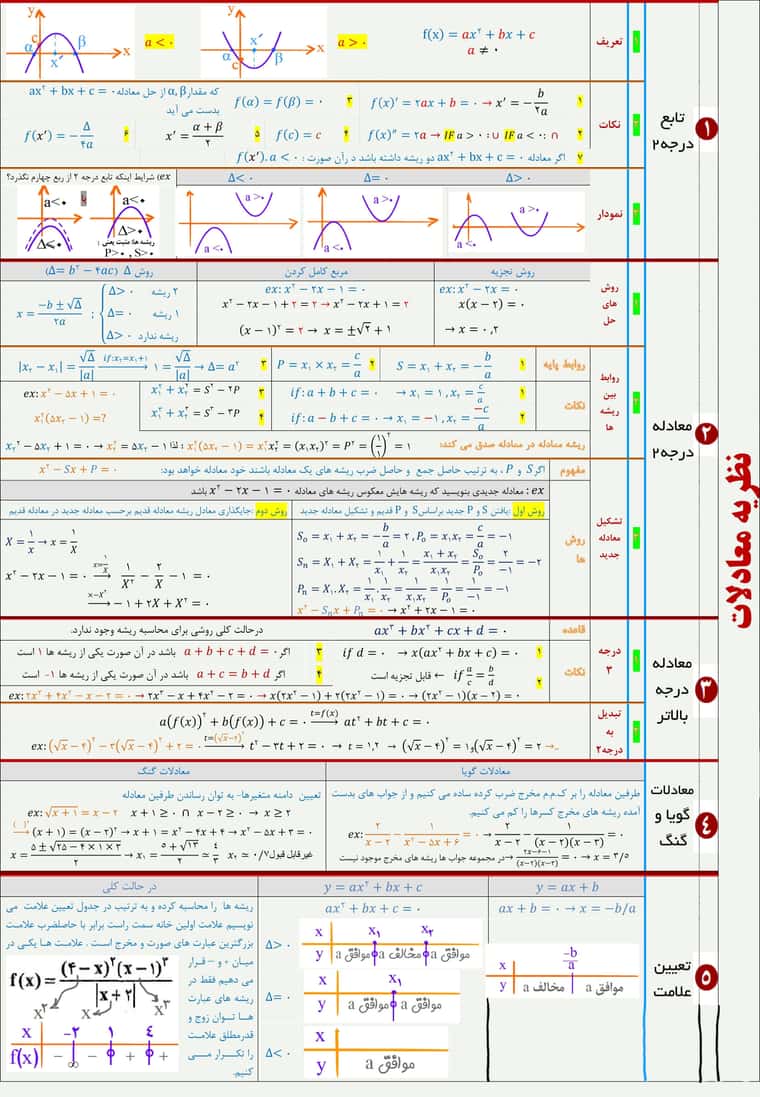 نظریه معادلات
۱
تابع درجه۲
۱ تعریف
f(x) = ax² + bx + c
a ≠ ۰
a > ۰
y x c α x′ β
a < ۰
y x c α x′ β
۲ نکات
۱ f(x)′ = ۲ax + b = ۰ → x′ = −b/۲a
۲ f(x)″ = ۲a → IF a > ۰ : ∪ IF a < ۰: ∩
۳ f(α) = f(β) = ۰ که مقدار α,β از حل معادله ax² + bx + c = ۰ بدست می آید
۴ f(c) = c
۵ x′ = (α + β)/۲
۶ f(x′) = −Δ/۴a
۷ اگر معادله ax² + bx + c = ۰ دو ریشه داشته باشد د رآن صورت : f(x′). a < ۰
۳ نمودار
Δ> ۰ Δ= ۰ Δ< ۰
a >۰ a <۰
a >۰ a <۰
a >۰ a <۰
ex) شرایط اینکه تابع درجه ۲ از ربع چهارم نگذرد؟
a<۰ Δ>۰ ریشه ها: مثبت یعنی : P>۰ , S>۰
یا
a<۰ Δ≤۰
۲
معادله درجه۲
۱ روش های حل
روش تجزیه
ex: x² − ۲x = ۰
x(x − ۲) = ۰
→ x = ۰,۲
مربع کامل کردن
ex: x² − ۲x − ۱ = ۰
x² − ۲x − ۱ + ۲ = ۲ → x² − ۲x + ۱ = ۲
(x − ۱)² = ۲ → x = ±√۲ + ۱
روش Δ (Δ= b² − ۴ac)
x = (−b ± √Δ)/۲a ; { Δ> ۰ ۲ ریشه
Δ= ۰ ۱ ریشه
Δ> ۰ ریشه ندارد
۲ روابط بین ریشه ها
روابط پایه
۱ S = x₁ + x₂ = −b/a
۲ P = x₁ × x₂ = c/a
۳ |x₂ − x₁| = √Δ/|a| if:x₂=x₁+۱ → ۱ = √Δ/|a| → Δ= a²
نکات
۱ if: a + b + c = ۰ → x₁ = ۱, x₂ = c/a
۲ if: a − b + c = ۰ → x₁ = −۱, x₂ = −c/a
۳ x₁² + x₂² = S² − ۲P
۴ x₁² + x₂² = S² − ۲P
ex: x² − ۵x + ۱ = ۰
x₁²(۵x₂ − ۱) =?
ریشه معادله در معادله صدق می کند: x₂² − ۵x₂ + ۱ = ۰ → x₂² = ۵x₂ − ۱ لذا : x₁²(۵x₂ − ۱) = x₁²x₂² = (x₁x₂)² = P² = (۱/۱)² = ۱
۳ تشکیل معادله جدید
مفهوم اگر S و P ، به ترتیب حاصل جمع و حاصل ضرب ریشه های یک معادله باشند خود معادله خواهد بود: x² − Sx + P = ۰
ex : معادله جدیدی بنویسید که ریشه هایش معکوس ریشه های معادله x² − ۲x − ۱ = ۰ باشد
روش ها
روش اول :یافتن S و P جدید براساس S و P قدیم و تشکیل معادله جدید
S₀ = x₁ + x₂ = −b/a = ۲ , P₀ = x₁x₂ = c/a = −۱
Sₙ = X₁ + X₂ = ۱/x₁ + ۱/x₂ = (x₁ + x₂)/x₁x₂ = S₀/P₀ = ۲/−۱ = −۲
Pₙ = X₁.X₂ = ۱/x₁ . ۱/x₂ = ۱/x₁x₂ = ۱/P₀ = ۱/−۱ = −۱
x² − Sₙx + Pₙ = ۰ → x² + ۲x − ۱ = ۰
روش دوم :جایگذاری معادل ریشه معادله قدیم برحسب معادله جدید در معادله قدیم
X = ۱/x → x = ۱/X
x² − ۲x − ۱ = ۰ x=۱/X → ۱/X² − ۲/X − ۱ = ۰
×−X² → −۱ + ۲X + X² = ۰
۳
معادله درجه بالاتر
۱ درجه ۳
قاعده ax³ + bx² + cx + d = ۰ درحالت کلی روشی برای محاسبه ریشه وجود ندارد.
نکات
۱ if d = ۰ → x(ax² + bx + c) = ۰
۲ if a/c = b/d ← قابل تجزیه است
۳ اگر a + b + c + d = ۰ باشد در آن صورت یکی از ریشه ها ۱ است
۴ اگر a + c = b + d باشد در آن صورت یکی از ریشه ها ۱− است
ex: ۲x³ + ۴x² − x − ۲ = ۰ → ۲x³ − x + ۴x² − ۲ = ۰ → x(۲x² − ۱) + ۲(۲x² − ۱) = ۰ → (۲x² − ۱)(x − ۲) = ۰
۲ تبدیل به درجه۲
a(f(x))² + b(f(x)) + c = ۰ t=f(x) → at² + bt + c = ۰
ex: (√x − ۴)² − ۳(√x − ۴)² + ۲ = ۰ t=(√x−۴)² → t² − ۳t + ۲ = ۰ → t = ۱,۲ → (√x − ۴)² = ۱ و (√x − ۴)² = ۲ → ..
۴
معادلات گویا و گنگ
معادلات گویا
طرفین معادله را بر ک.م.م مخرج ضرب کرده ساده می کنیم و از جواب های بدست آمده ریشه های مخرج کسرها را کم می کنیم.
ex: ۲/(x − ۲) − ۱/(x² − ۵x + ۶) = ۰ → ۲/(x − ۲) − ۱/((x − ۲)(x − ۳)) = ۰
→ (۲x−۶−۱)/((x−۲)(x−۳)) = ۰ → x = ۳/۵ در مجموعه جواب ها ریشه های مخرج موجود نیست
معادلات گنگ
تعیین دامنه متغیرها- به توان رساندن طرفین معادله
ex: √(x + ۱) = x − ۲ x + ۱ ≥ ۰ ∩ x − ۲ ≥ ۰ → x ≥ ۲
( )² → (x + ۱) = (x − ۲)² → x + ۱ = x² − ۴x + ۴ → x² − ۵x + ۳ = ۰
x = (۵ ± √(۲۵ − ۴ × ۱ × ۳))/۲ → x₁ = (۵ + √۱۳)/۲ ≃ ۴/۳ x₂ ≃ ۰/۷ غیر قابل قبول
۵
تعیین علامت
y = ax + b
ax + b = ۰ → x = −b/a
x −b/a
y مخالف a موافق a
y = ax² + bx + c
ax² + bx + c = ۰
Δ> ۰
x x₁ x₂
y موافق a مخالف a موافق a
Δ= ۰
x x₁
y موافق a موافق a
Δ< ۰
x
y موافق a
در حالت کلی
ریشه ها را محاسبه کرده و به ترتیب در جدول تعیین علامت می نویسیم علامت اولین خانه سمت راست برابر با حاصلضرب علامت بزرگترین عبارت های صورت و مخرج است . علامت ها یکی در میان + و – قرار می دهیم فقط در ریشه های عبارت ها توان زوج و قدرمطلق علامت را تکرار می کنیم.
f(x) = (۴−x)²(x−۱)³/|x+۲|
x² x x³
x −۲ ۱ ۴
f(x) − ∞ − + +